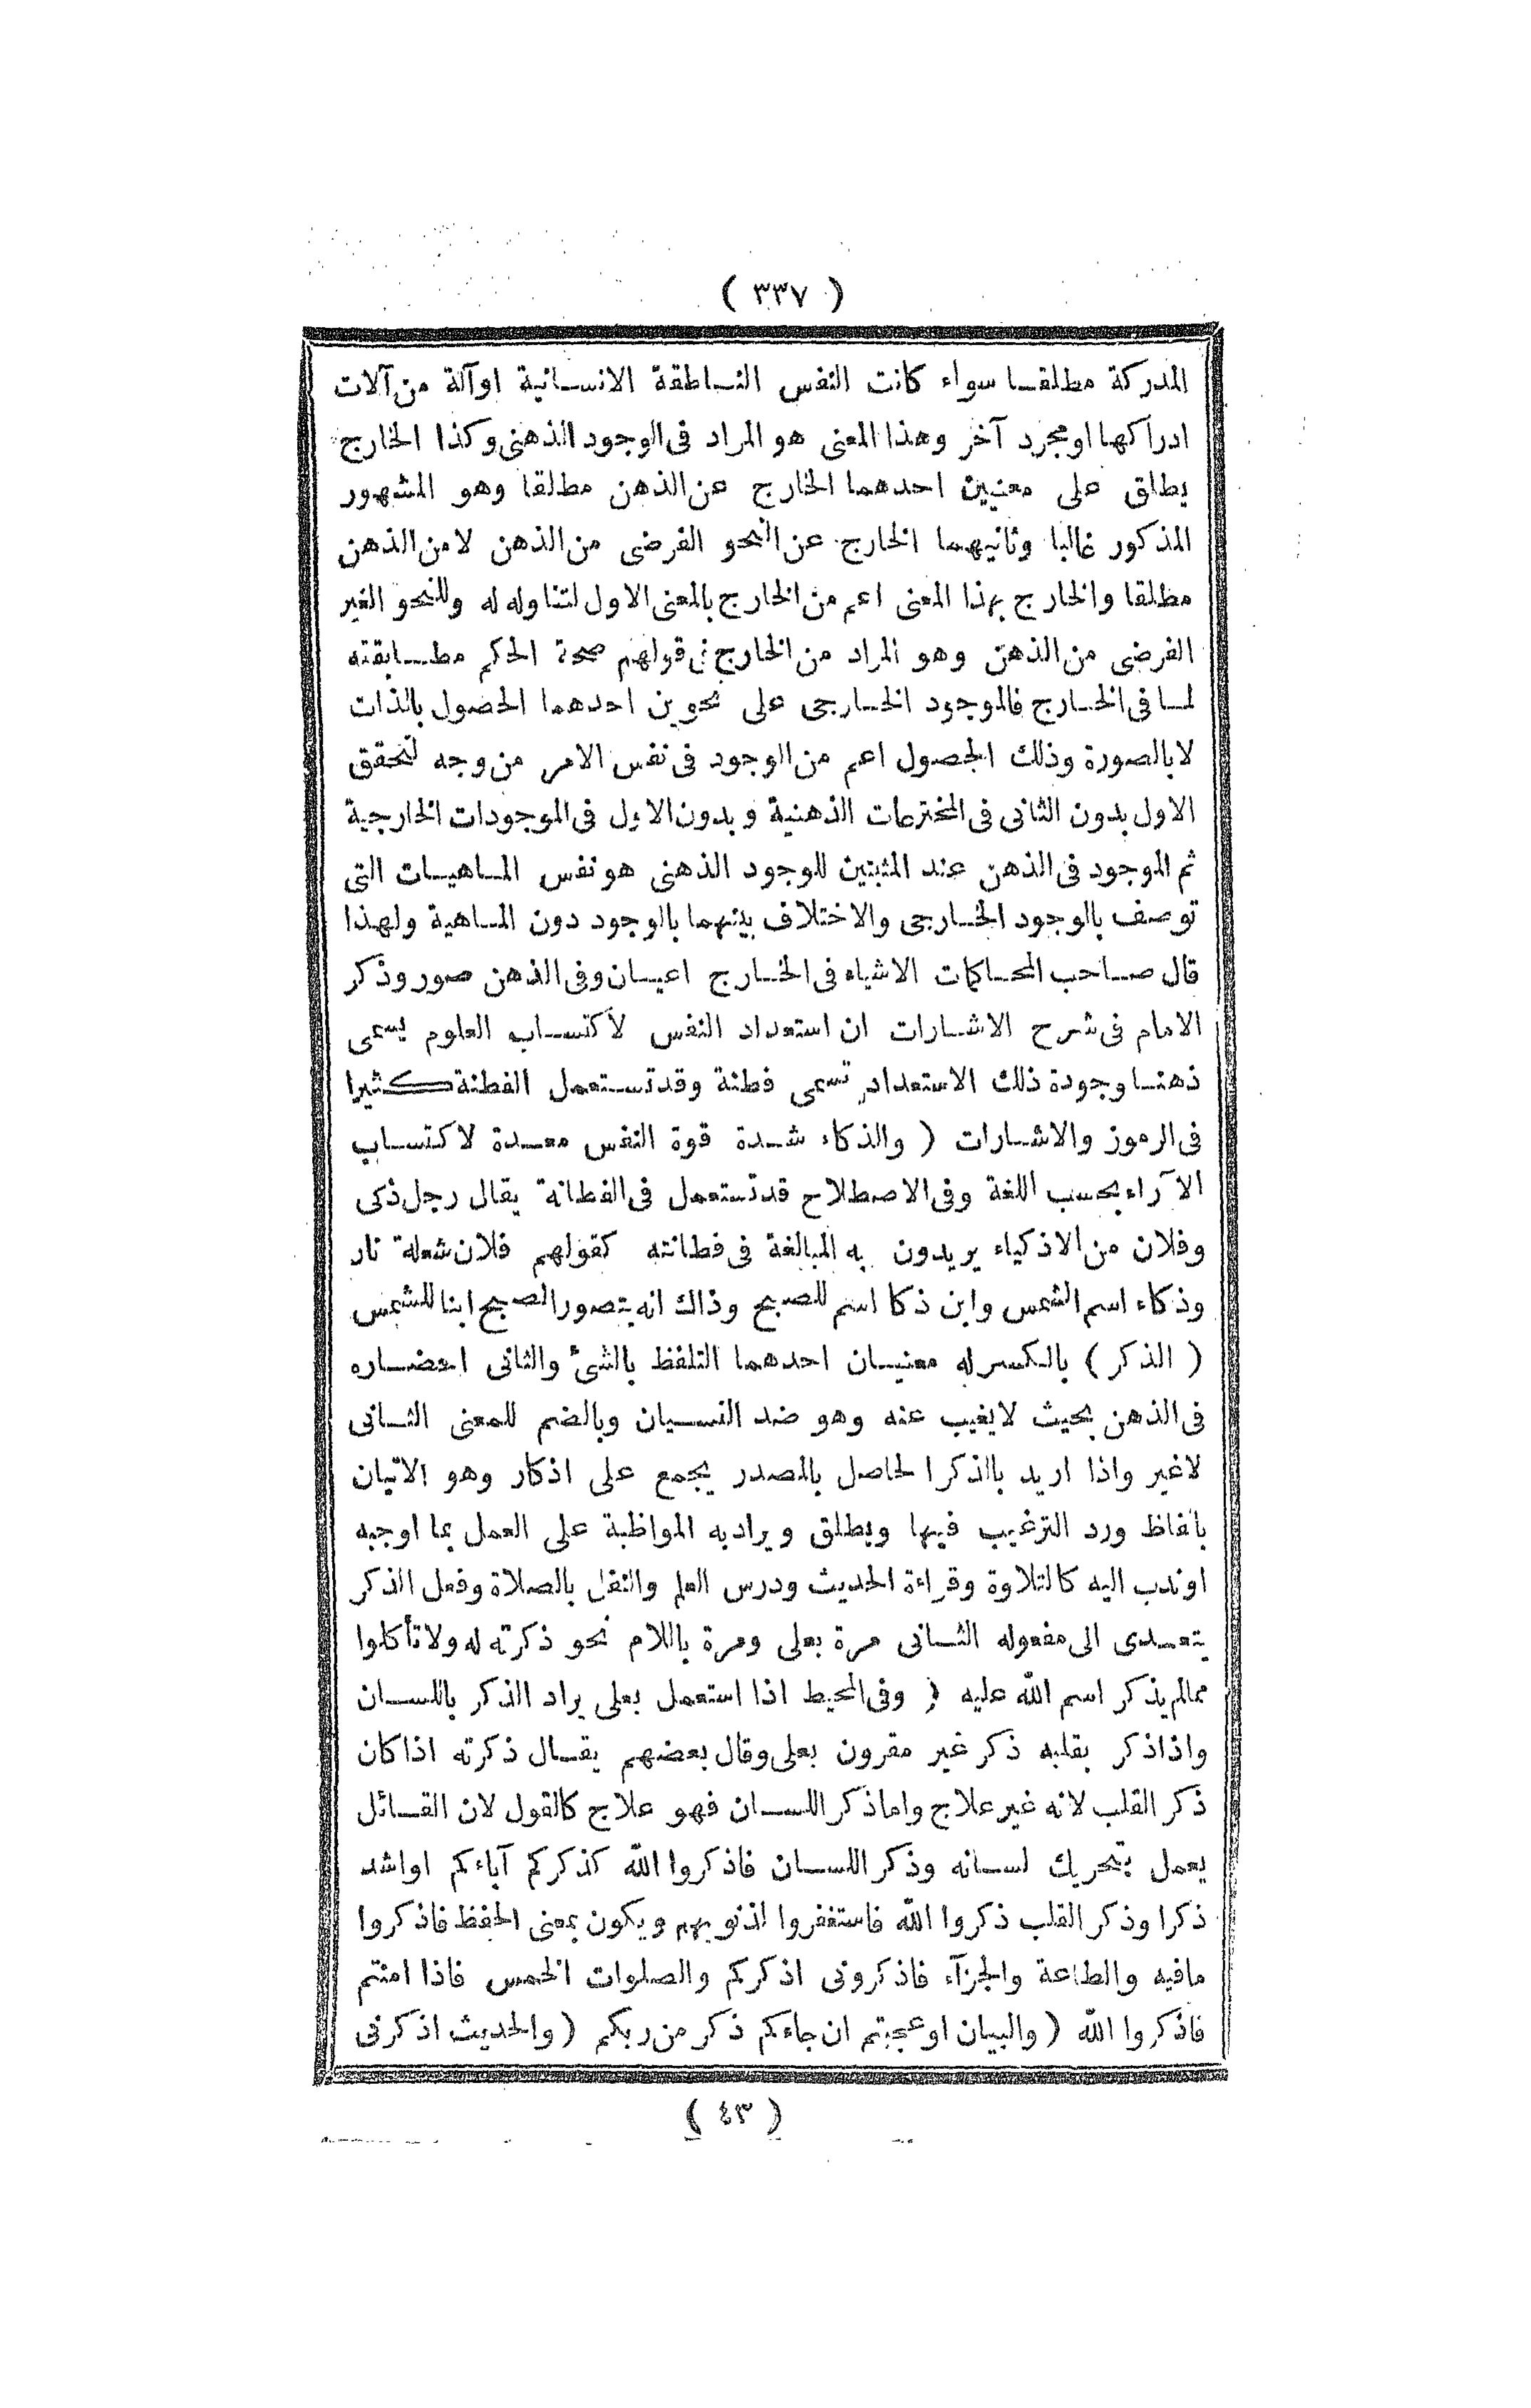 ( ٣٣٧ )
المدركة مطلقا سواء كانت النفس الناطقة الانسانية اوآلة من آلات
ادراكها اومجرد آخر وهذا المعنى هو المراد فى الوجود الذهنى وكذا الخارج
يطلق على معنيين احدهما الخارج عن الذهن مطلقا وهو المشهور
المذكور غالبا وثانيهما الخارج عن النحو الفرضى من الذهن لا من الذهن
مطلقا والخارج بهذا المعنى اعم من الخارج بالمعنى الاول لتناوله له وللنحو الغير
الفرضى من الذهن وهو المراد من الخارج فى قولهم صحة الحكم مطابقته
لما فى الخارج فالموجود الخارجى على نحوين احدهما الحصول بالذات
لا بالصورة وذلك الحصول اعم من الوجود فى نفس الامر من وجه لتحقق
الاول بدون الثانى فى المخترعات الذهنية وبدون الاول فى الموجودات الخارجية
ثم الموجود فى الذهن عند المثبتين للوجود الذهنى هو نفس الماهيات التى
توصف بالوجود الخارجى والاختلاف بينهما بالوجود دون الماهية ولهذا
قال صاحب المحاكمات الاشياء فى الخارج اعيان وفى الذهن صور وذكر
الامام فى شرح الاشارات ان استعداد النفس لأكتساب العلوم يسمى
ذهنا وجودة ذلك الاستعداد تسمى فطنة وقد تستعمل الفطنة كثيرا
فى الرموز والاشارات ( والذكاء شدة قوة النفس معدة لاكتساب
الآراء بحسب اللغة وفى الاصطلاح قد تستعمل فى الفطانة يقال رجل ذكى
وفلان من الاذكياء يريدون به المبالغة فى فطانته كقولهم فلان شعلة نار
وذكاء اسم الشمس وابن ذكا اسم للصبح وذاك انه يتصور الصبح ابنا للشمس
( الذكر ) بالكسر له معنيان احدهما التلفظ بالشئ والثانى احضاره
فى الذهن بحيث لا يغيب عنه وهو ضد النسيان وبالضم للمعنى الثانى
لا غير واذا اريد بالذكر الحاصل بالمصدر يجمع على اذكار وهو الاتيان
بالفاظ ورد الترغيب فيها ويطلق ويراد به المواظبة على العمل بما اوجبه
او ندب اليه كالتلاوة وقراءة الحديث ودرس العلم والنفل بالصلاة وفعل الذكر
يتعدى الى مفعوله الثانى مرة بعلى ومرة باللام نحو ذكرته له ولا تأكلوا
مما لم يذكر اسم الله عليه ( وفى المحيط اذا استعمل بعلى يراد الذكر باللسان
واذا ذكر بقلبه ذكر غير مقرون بعلى وقال بعضهم يقال ذكرته اذا كان
ذكر القلب لانه غير علاج واما ذكر اللسان فهو علاج كالقول لان القائل
يعمل بتحريك لسانه وذكر اللسان فاذكروا الله كذكركم آباءكم او اشد
ذكرا وذكر القلب ذكروا الله فاستغفروا لذنوبهم ويكون بمعنى الحفظ فاذكروا
ما فيه والطاعة والجزآء فاذكرونى اذكركم والصلوات الخمس فاذا امنتم
فاذكروا الله ( والبيان اوعجبتم ان جاءكم ذكر من ربكم ( والحديث اذكرنى
( ٤٣ )